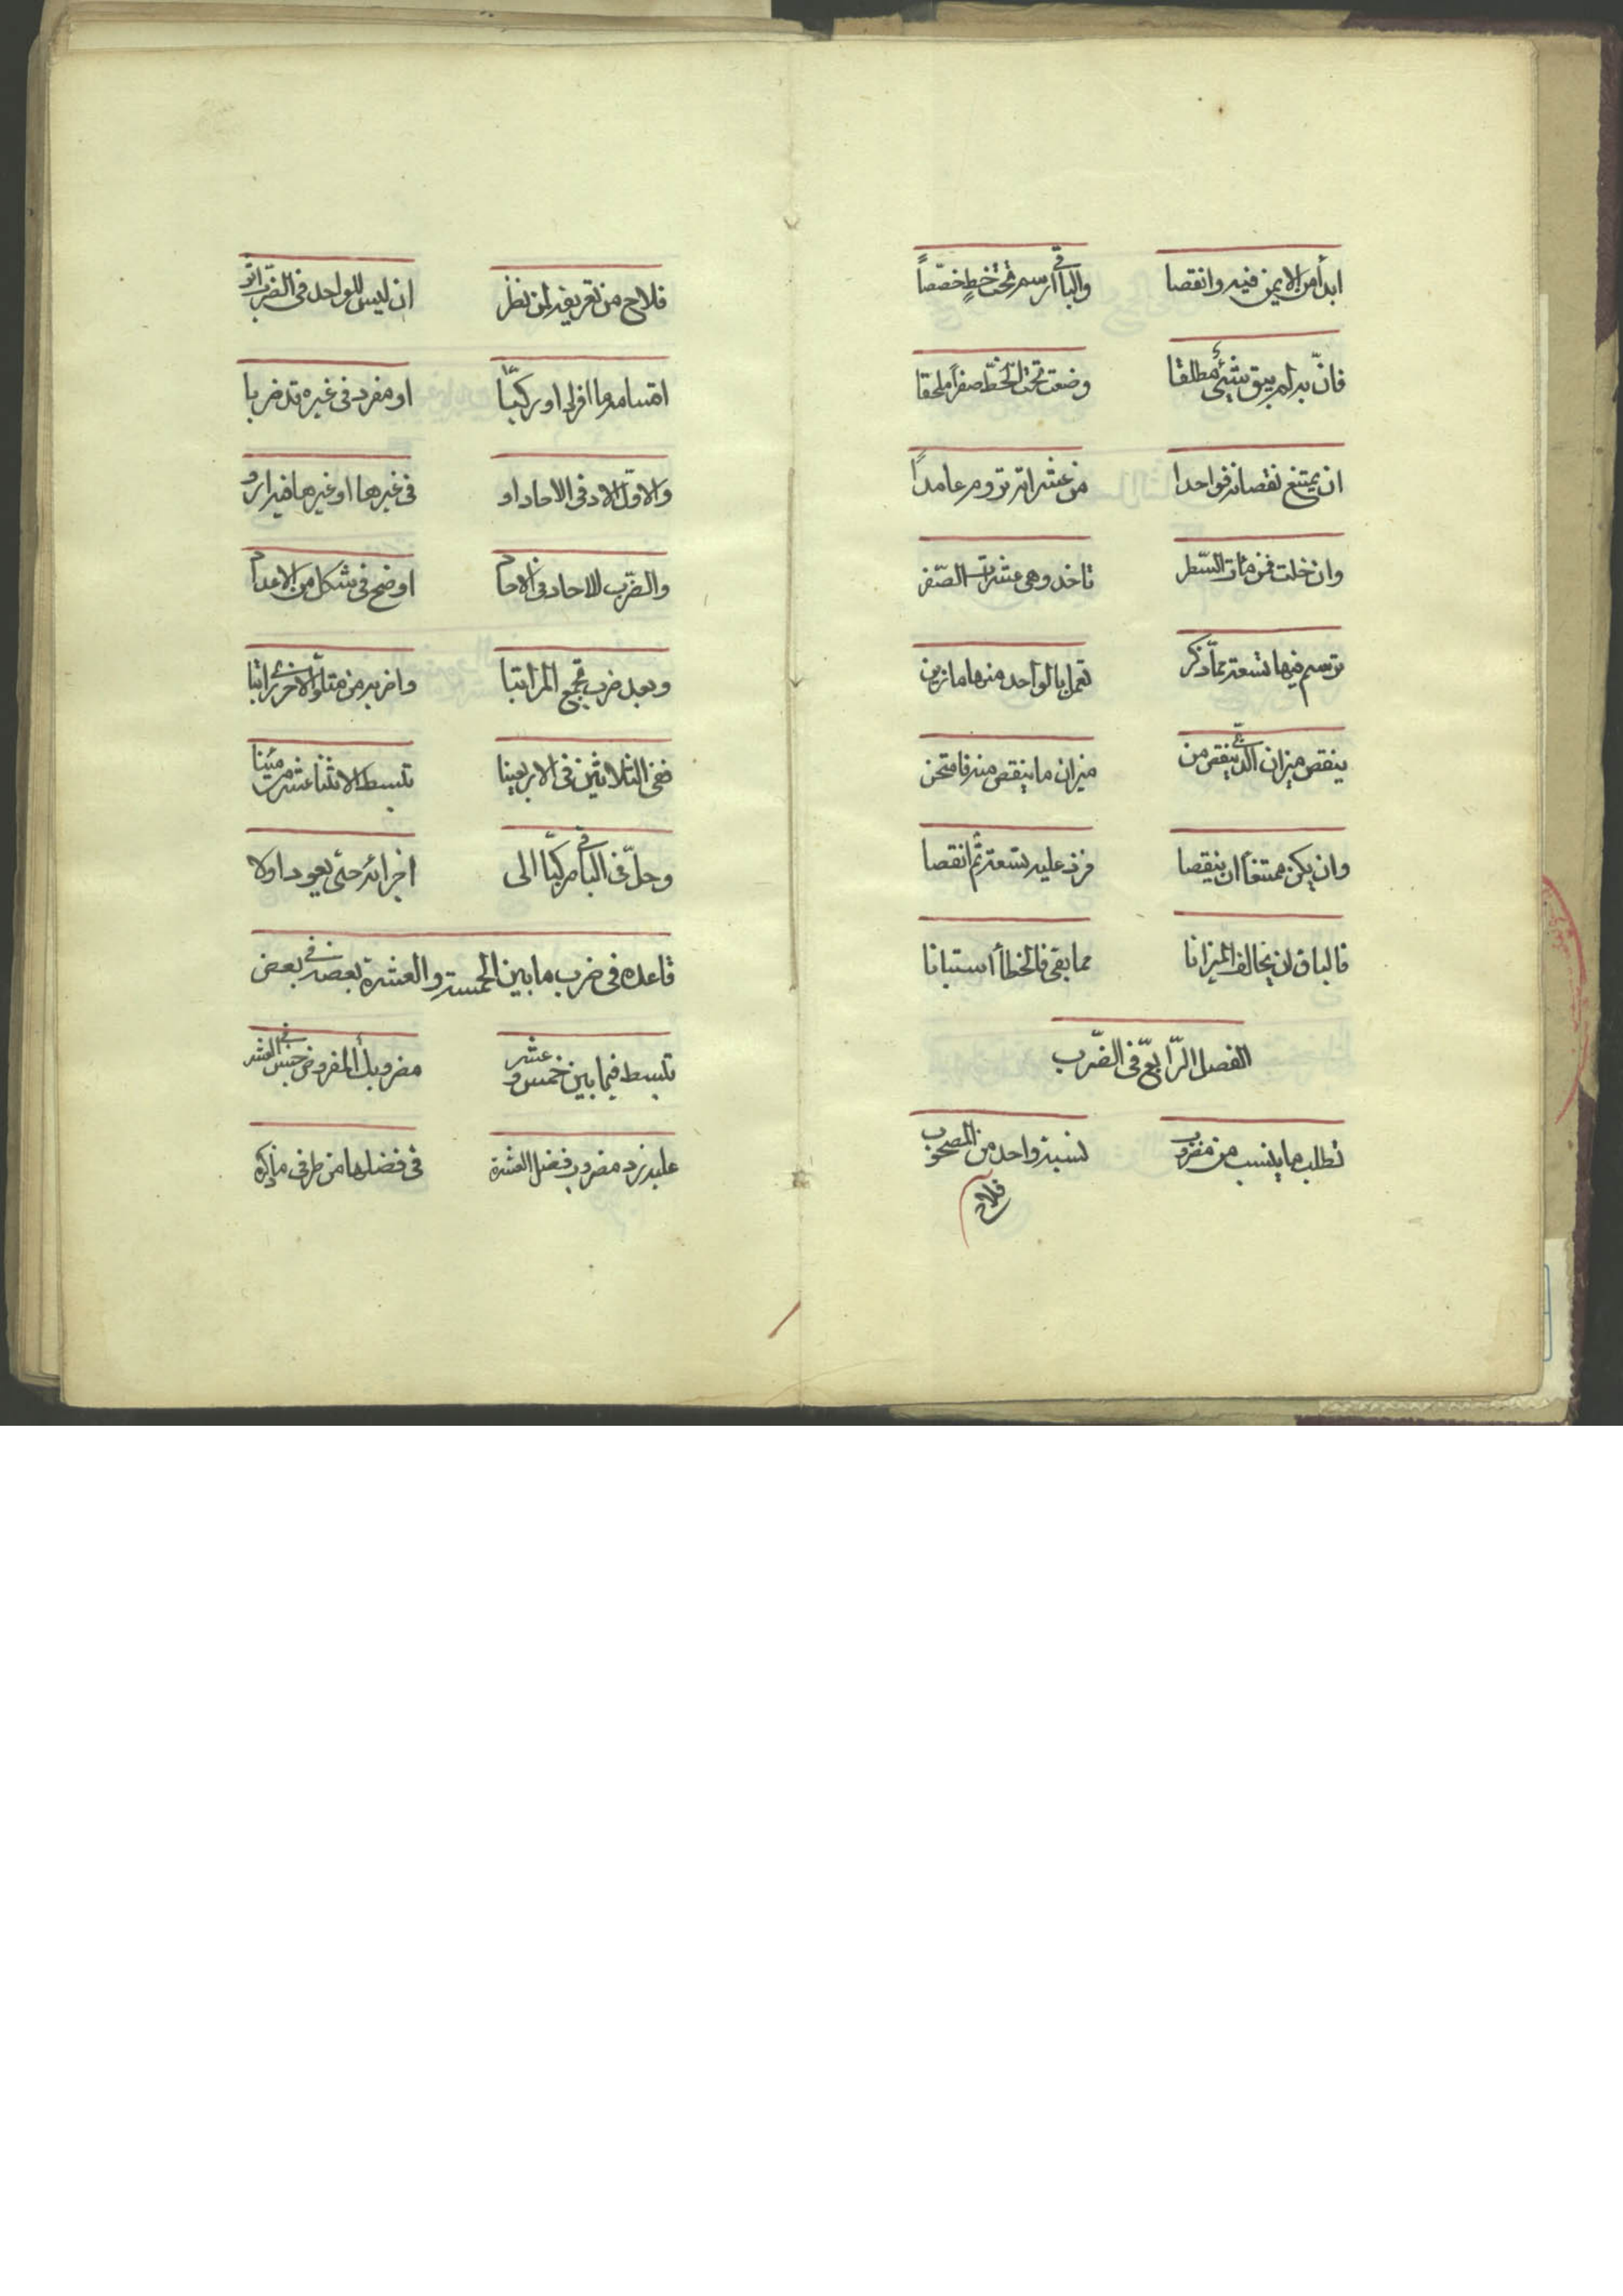 ابدأ من الايمن فيه وانقصا والباقى ارسم تحت خط خصّصاً
فان به لم يبق شيئ مطلقا وضعت تحت الخطّ صفراً ملحقا
ان يمتنع نقصانه فواحدا من عشراته تروم عامداً
وان خلت فمن مئات السّطر تاخذ وهى عشرات الصّفر
ترسم فيها تسعة ممّا ذكر تعمل بالواحد منها ما زبن
ينقص ميزان الّذى ينقص من ميزان ما ينقص منه فامتحن
وان يكن ممتنعاً ان ينقصا فزد عليه تسعة ثم انقصا
فالباق ان يخالف الميزانا مما بقى فالخطأ استبانا
الفصل الرّابع فى الضّرب
تطلب ما ينسب من مضروب نسبة واحد من المصحوب
فلاح
فلاح من تعريفه لمن نظر ان ليس للواحد فى الضّرب اثر
اقسامه ما افراد او ركّبا او مفرد فى غيره قد ضربا
والاوّل الاد فى الاحاد او فى غيرها او غيرها فيه
والضّرب للاحاد فى الاحاد اوضح فى شكل من الاعداد
وبعد ضرب تجمع المراتبا واضربه من متلوّ الاخرى راتبا
ففى الثلاثين فى الاربعينا تبسط الاثنا عشرت مئينا
وحلّ فى الباقى مركّبا الى اجزائه حتى يعود اولا
قاعده فى ضرب ما بين الخمسة والعشرة بعضه فى بعض
تبسط فيما بين خمس وعشر مضروبك المفروض فى جنس العشر
عليه زد مضروب فضل العشرة فى فضلها من طرفى ما ذكره